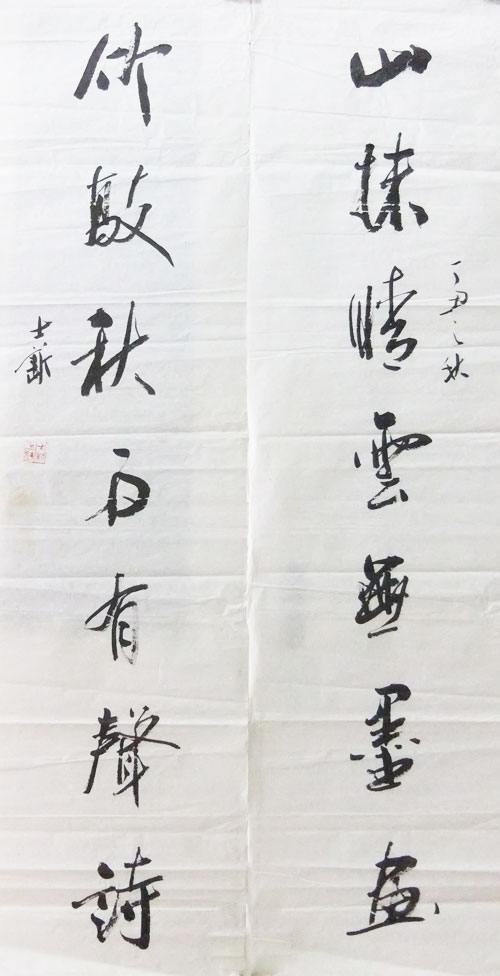 丁丑之秋
山抹晴雲無墨畫
竹敲秋雨有聲詩
士